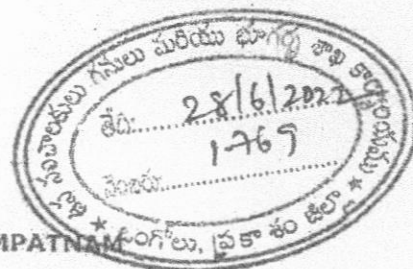 ఉప సంచాలకులు గనులు మరియు భూగర్భ శాఖ కార్యాలయము
తేది: 28/6/2022
నెంబరు: 1769
★ ఒంగోలు, ప్రకాశం జిల్లా ★
MPATNAM